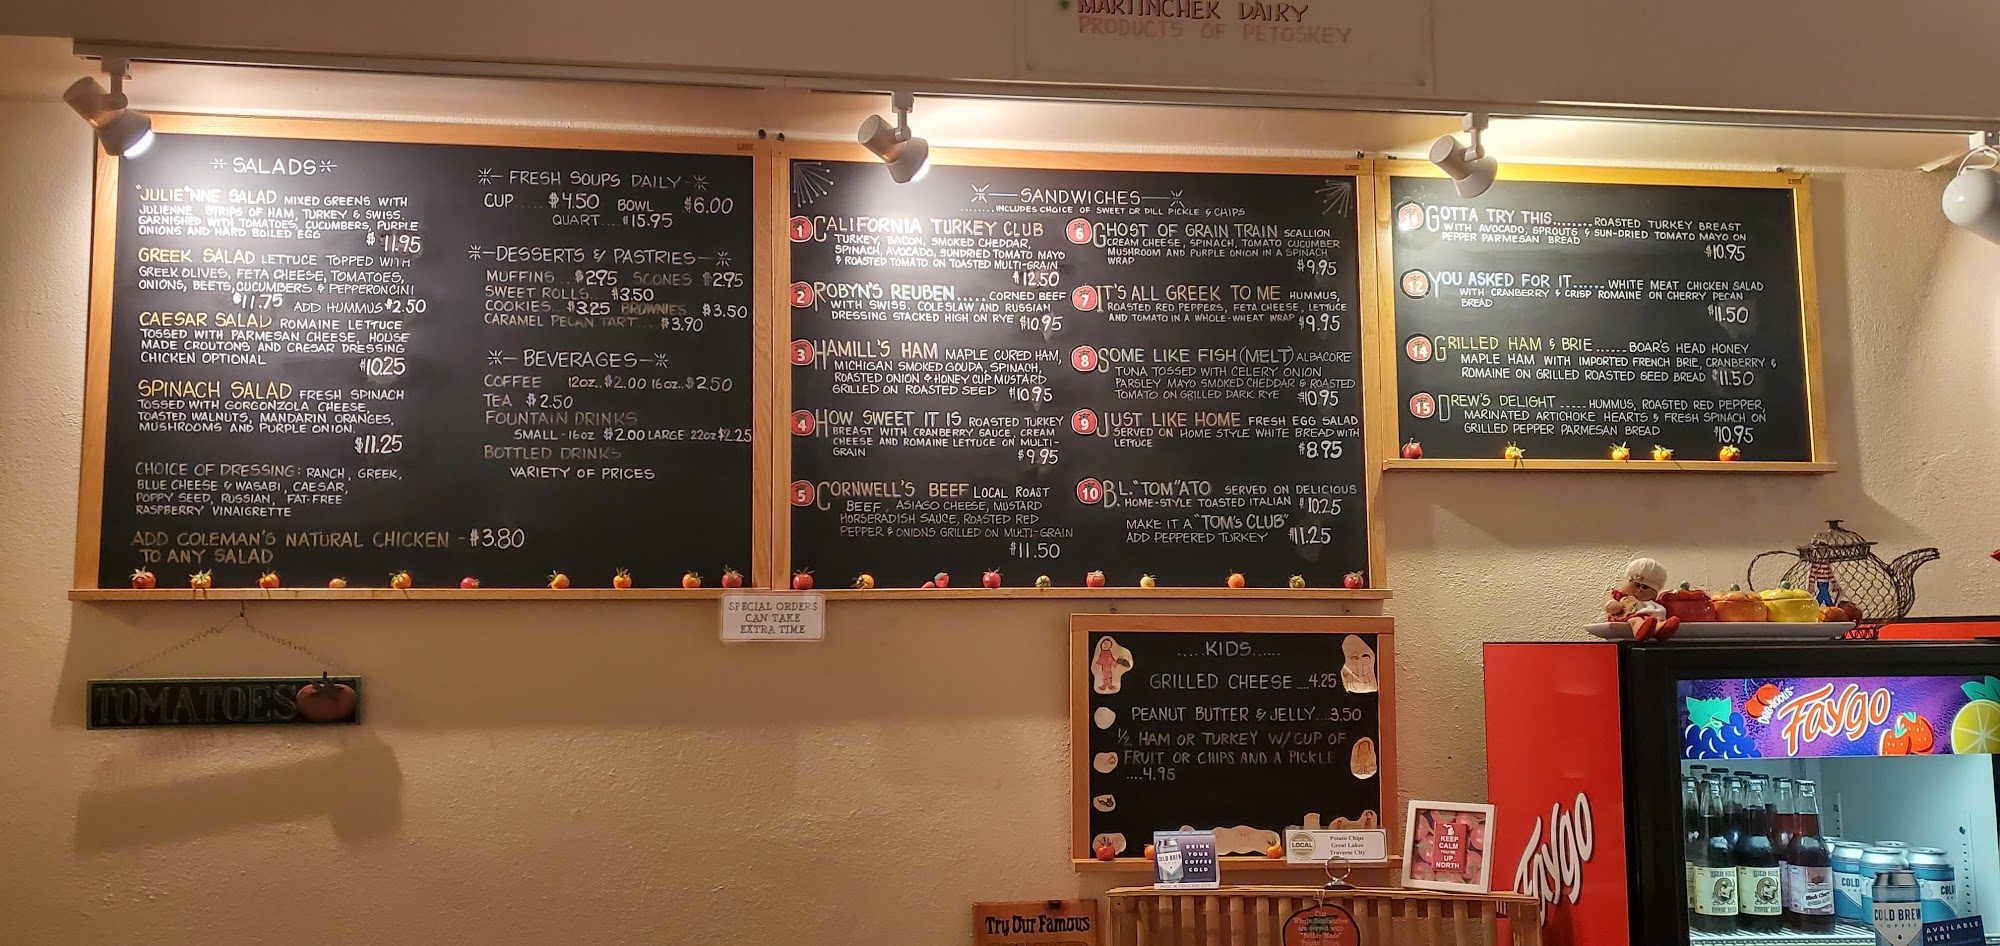 MARTINCHEK DAIRY
PRODUCTS OF PETOSKEY
SALADS
"JULIE"NNE SALAD MIXED GREENS WITH
JULIENNE STRIPS OF HAM, TURKEY & SWISS.
GARNISHED WITH TOMATOES, CUCUMBERS, PURPLE
ONIONS AND HARD BOILED EGG
$11.95
GREEK SALAD LETTUCE TOPPED WITH
GREEK OLIVES, FETA CHEESE, TOMATOES,
ONIONS, BEETS, CUCUMBERS & PEPPERONCINI
$11.75 ADD HUMMUS $2.50
CAESAR SALAD ROMAINE LETTUCE
TOSSED WITH PARMESAN CHEESE, HOUSE
MADE CROUTONS AND CAESAR DRESSING
CHICKEN OPTIONAL
$10.25
SPINACH SALAD FRESH SPINACH
TOSSED WITH GORGONZOLA CHEESE,
TOASTED WALNUTS, MANDARIN ORANGES,
MUSHROOMS AND PURPLE ONION
$11.25
CHOICE OF DRESSING: RANCH, GREEK,
BLUE CHEESE & WASABI, CAESAR,
POPPY SEED, RUSSIAN, FAT-FREE
RASPBERRY VINAIGRETTE
ADD COLEMAN'S NATURAL CHICKEN - $3.80
TO ANY SALAD
FRESH SOUPS DAILY
CUP..... $4.50 BOWL ..$6.00
QUART....$15.95
DESSERTS & PASTRIES
MUFFINS... $2.95 SCONES $2.95
SWEET ROLLS... $3.50
COOKIES... $3.25 BROWNIES $3.50
CARAMEL PECAN TART.... $3.90
BEVERAGES
COFFEE 12oz.. $2.00 16oz.. $2.50
TEA $2.50
FOUNTAIN DRINKS
SMALL - 16oz $2.00 LARGE - 22oz $2.25
BOTTLED DRINKS
VARIETY OF PRICES
SPECIAL ORDERS
CAN TAKE
EXTRA TIME
TOMATOES
SANDWICHES
........INCLUDES CHOICE OF SWEET OR DILL PICKLE & CHIPS
1 CALIFORNIA TURKEY CLUB
TURKEY, BACON, SMOKED CHEDDAR,
SPINACH, AVOCADO, SUNDRIED TOMATO MAYO
& ROASTED TOMATO ON TOASTED MULTI-GRAIN
$12.50
2 ROBYN'S REUBEN..... CORNED BEEF
WITH SWISS, COLESLAW AND RUSSIAN
DRESSING STACKED HIGH ON RYE $10.95
3 HAMILL'S HAM MAPLE CURED HAM,
MICHIGAN SMOKED GOUDA, SPINACH,
ROASTED ONION & HONEY CUP MUSTARD
GRILLED ON ROASTED SEED $10.95
4 HOW SWEET IT IS ROASTED TURKEY
BREAST WITH CRANBERRY SAUCE, CREAM
CHEESE AND ROMAINE LETTUCE ON MULTI-
GRAIN $9.95
5 CORNWELL'S BEEF LOCAL ROAST
BEEF, ASIAGO CHEESE, MUSTARD
HORSERADISH SAUCE, ROASTED RED
PEPPER & ONIONS GRILLED ON MULTI-GRAIN
$11.50
6 GHOST OF GRAIN TRAIN SCALLION
CREAM CHEESE, SPINACH, TOMATO CUCUMBER
MUSHROOM AND PURPLE ONION IN A SPINACH
WRAP
$9.95
7 IT'S ALL GREEK TO ME HUMMUS,
ROASTED RED PEPPERS, FETA CHEESE, LETTUCE
AND TOMATO IN A WHOLE-WHEAT WRAP $9.95
8 SOME LIKE FISH (MELT) ALBACORE
TUNA TOSSED WITH CELERY ONION
PARSLEY MAYO SMOKED CHEDDAR & ROASTED
TOMATO ON GRILLED DARK RYE $10.95
9 JUST LIKE HOME FRESH EGG SALAD
SERVED ON HOME STYLE WHITE BREAD WITH
LETTUCE
$8.95
10 B.L."TOM"ATO SERVED ON DELICIOUS
HOME-STYLE TOASTED ITALIAN $10.25
MAKE IT A "TOM'S CLUB"
ADD PEPPERED TURKEY $11.25
11 GOTTA TRY THIS.......ROASTED TURKEY BREAST
WITH AVOCADO, SPROUTS & SUN-DRIED TOMATO MAYO ON
PEPPER PARMESAN BREAD
$10.95
12 YOU ASKED FOR IT...... WHITE MEAT CHICKEN SALAD
WITH CRANBERRY & CRISP ROMAINE ON CHERRY PECAN
BREAD
$11.50
14 GRILLED HAM & BRIE ......BOAR'S HEAD HONEY
MAPLE HAM WITH IMPORTED FRENCH BRIE, CRANBERRY &
ROMAINE ON GRILLED ROASTED SEED BREAD $11.50
15 DREW'S DELIGHT .....HUMMUS, ROASTED RED PEPPER,
MARINATED ARTICHOKE HEARTS & FRESH SPINACH ON
GRILLED PEPPER PARMESAN BREAD
$10.95
.....KIDS......
GRILLED CHEESE....4.25
PEANUT BUTTER & JELLY...3.50
1/2 HAM OR TURKEY W/ CUP OF
FRUIT OR CHIPS AND A PICKLE
....4.95
COLD BREW
DRINK
YOUR
COFFEE
COLD
LOCAL
Potato Chips
Great Lakes
Traverse City
KEEP
CALM
YOU'RE
UP
NORTH
Try Our Famous
Our
Whole Sandwiches
are served with
"Better Made"
Potato Chips
Faygo
Faygo
COLD
COLD BREW
COFFEE
AVAILABLE
HERE